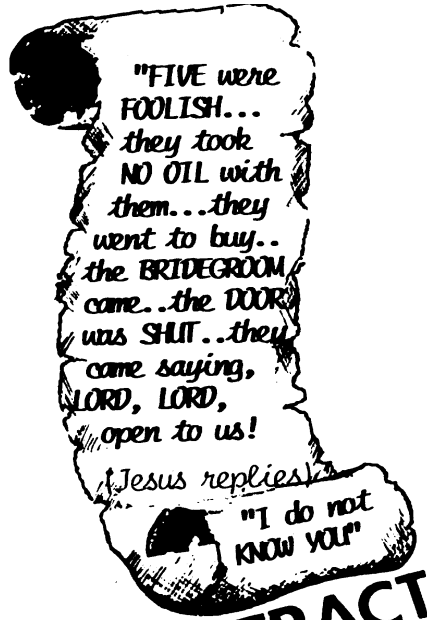 "FIVE were
FOOLISH...
they took
NO OIL with
them...they
went to buy..
the BRIDEGROOM
came..the DOOR
was SHUT..they
came saying,
LORD, LORD,
open to us!
(Jesus replies)
"I do not
KNOW YOU"
TRACT